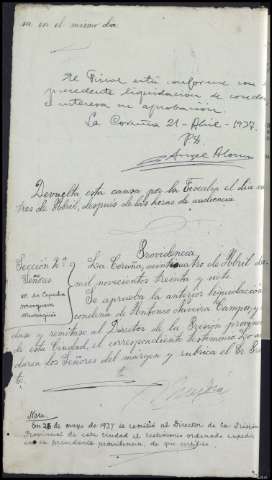 sa en el mismo dia
El Fiscal está conforme con la
precedente liquidación de condena
e interesa su aprobación
La Coruña 21 - Abril - 1937.
Angel Alonso
Devuelta esta causa por la Fiscalia el dia
tres de Abril, despues de las horas de audiencia
Providencia
Sección 2ª
Señores
La Coruña, veinticuatro de Abril de
mil novecientos treinta y siete
Se aprueba la anterior liquidación
condena de Antonio Chavera Campos, y
dese y remitase al Director de la Prisión provincial
de esta Ciudad, el correspondiente testimonio Lo
daron los Señores del margen y rubrica el Sr.
Nota:
En 28 de mayo de 1937 se remitió al Director de la Prisión
Provincial de esta ciudad el testimonio ordenado expedir
en la precedente providencia, de que certifico.